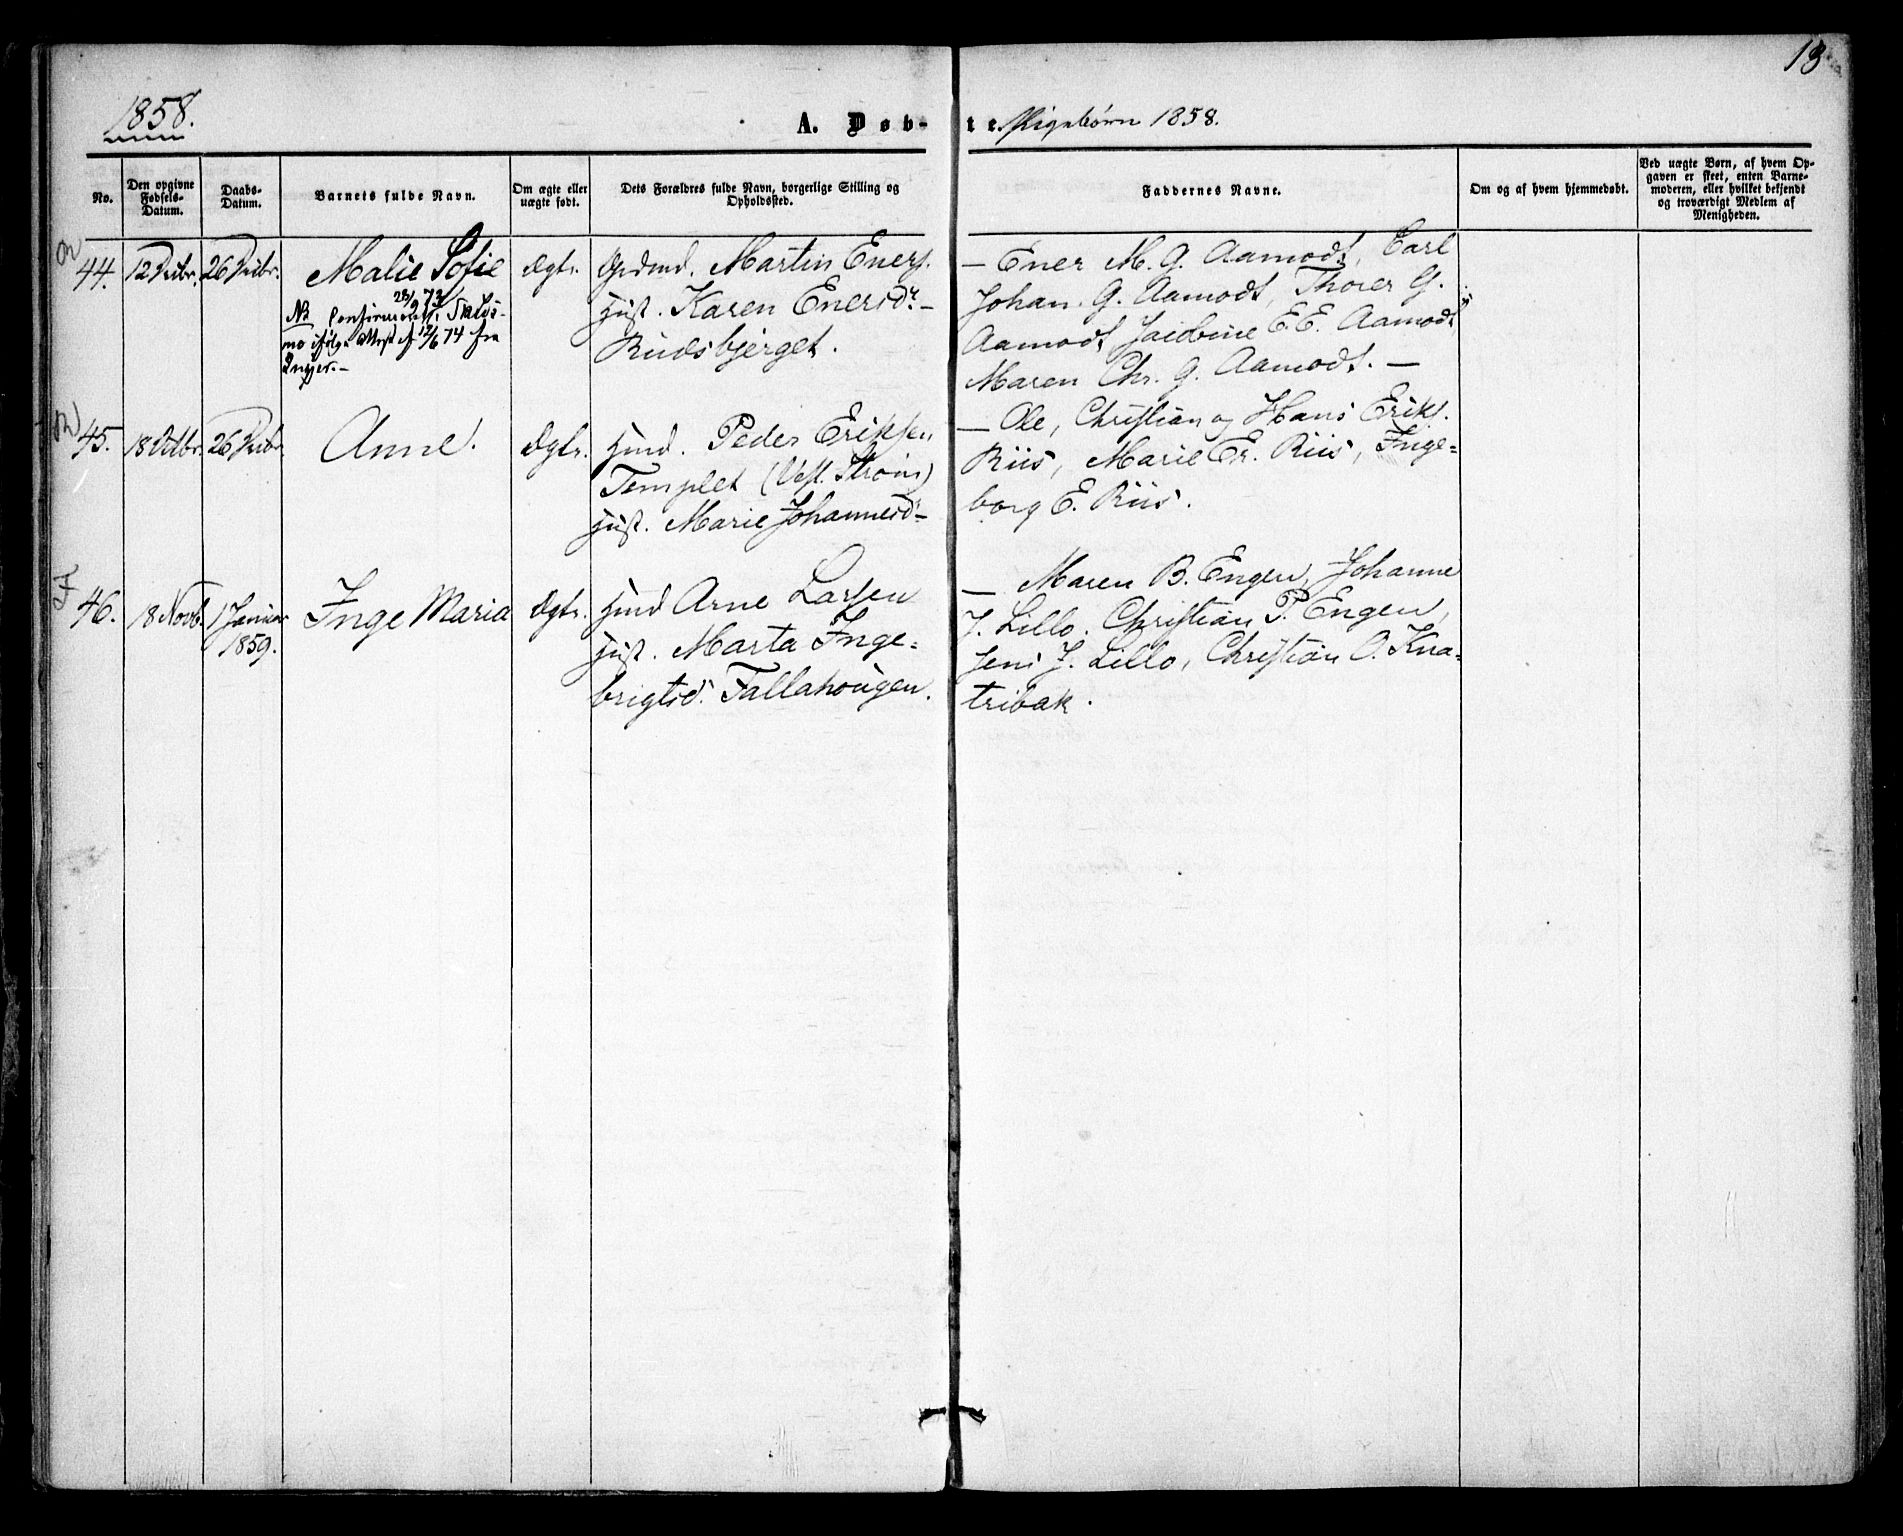 13
1858.
A. Døb-
te. Pigebørn 1858.
No.
Den opgivne
Fødsels-
Datum.
Daabs-
Datum.
Barnets fulde Navn.
Om ægte eller
uægte født.
Dets Forældres fulde Navn, borgerlige Stilling og
Opholdssted.
Faddernes Navne.
Om og af hvem hjemmedøbt.
Ved uægte Børn, af hvem Op-
gaven er skeet, enten Barne-
moderen, eller hvilket bekjendt
og troværdigt Medlem af
Menigheden.
44.
12 Octbr.
26 Decbr.
Malie Sofie
NB
ifølge Attest af 12/6 74 fra
ægte.
Grdmd. Martin Eners.
Hust. Karen Enersdr.
Ruudsbjerget.
— Ener M. G. Aamodt, Carl
Johan G. Aamodt, Thorer G.
Aamodt, Jacobine E. E. Aamodt,
Maren Chr. G. Aamodt. —
45.
18 Octbr.
26 Decbr.
Anne.
ægte.
Husmd. Peder Eriksen
Templet (Vest. Strøm)
Hust. Marie Johannesd.
— Ole, Christian og Hans Eriks.
Riis, Marie Er. Riis, Inge-
borg E. Riis.
46.
18 Novb.
1 Januar
1859.
Inge Maria
ægte.
Husmd Arne Larsen
Hust. Marta Inge-
brigtsd. Fallahougen.
— Maren B. Engen, Johanne
J. Lillo, Christian P. Engen,
Jens J. Lillo, Christian O. Kna-
tribak.